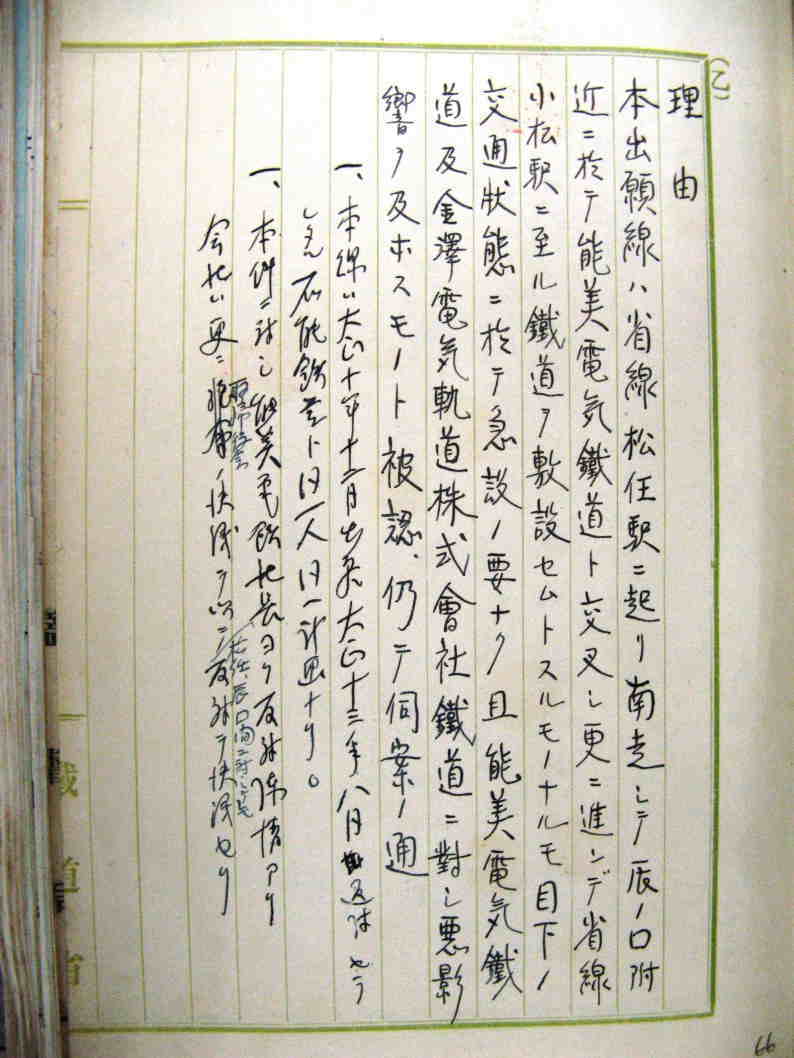 (乙)
理由
本出願線ハ省線松任駅ニ起リ南走シテ辰ノ口附
近ニ於テ能美電気鐵道ト交叉シ更ニ進ンデ省線
小松駅ニ至ル鐵道ヲ敷設セムトスルモノナルモ目下ノ
交通狀態ニ於テ急設ノ要ナク且能美電気鐵
道及金澤電気軌道株式會社鐵道ニ對シ悪影
響ヲ及ホスモノト被認、仍テ伺案ノ通
一、本線ハ大正十年十二月出願大正十三年八月返付セラ
レタル石能鉄道ト同一人同一計画ナリ。
一、本件ニ対シ能美電鉄社長ヨリ反対陳情アリ
会社ハ更ニ総会ノ決議ヲ以テ反対ヲ決議セリ
鐵道省
66